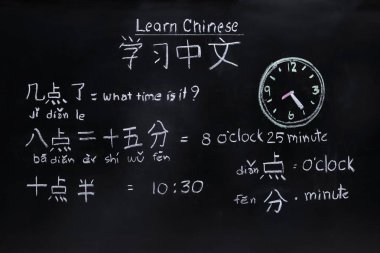 Learn Chinese
学习中文
几点了 = what time is it?
jǐ diǎn le
八点二十五分 = 8 o'clock 25 minute
bā diǎn èr shí wǔ fēn
diǎn 点 = o'clock
十点半 = 10:30
fēn 分 · minute
12
3
6
9